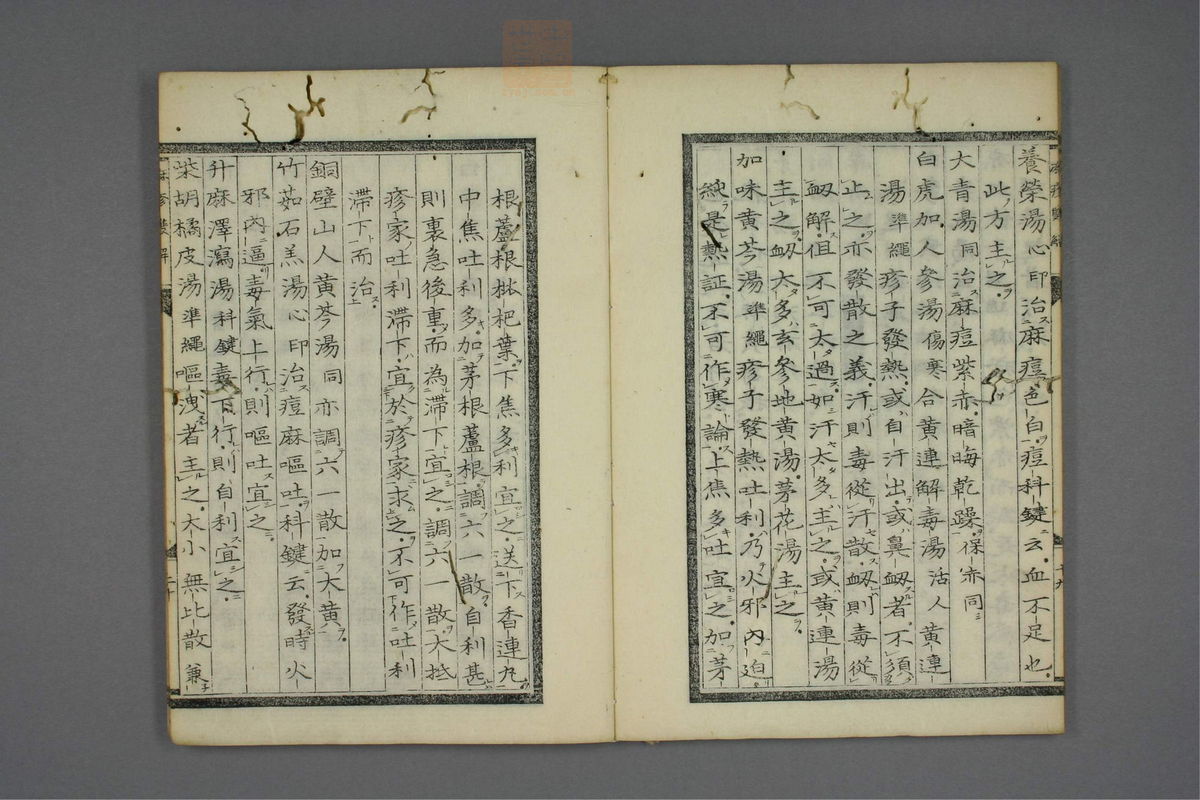 養榮湯心印治麻痘色白痘科鍵云血不足也
此方主之
大青湯同治麻痘紫赤暗晦乾躁保亦同
白虎加人參湯傷寒合黄連解毒湯活人黄連
湯準繩疹子發熱或自汗出或鼻衂者不須
止之亦發散之義汗則毒從汗散衂則毒從
衂解但不可太過如汗太多主之或黄連湯
主之衂太多玄參地黄湯茅花湯主之
加味黄芩湯準繩疹子發熱吐利乃火邪内迫
純是熱証不可作寒論上焦多吐宜之加茅
根蘆根枇杷葉下焦多利宜之送下香連丸
中焦吐利多加茅根蘆根調六一散自利甚
則裏急後重而為滯下宜之調六一散大抵
疹家吐利滯下宜於疹家求之不可作吐利
滯下而治
銅壁山人黄芩湯同亦調六一散加大黄
竹茹石羔湯心印治痘麻嘔吐科鍵云發時火
邪内逼毒氣上行則嘔吐宜之
升麻澤瀉湯科鍵毒下行則自利宜之
柴胡橘皮湯準繩嘔洩者主之大小無比散兼